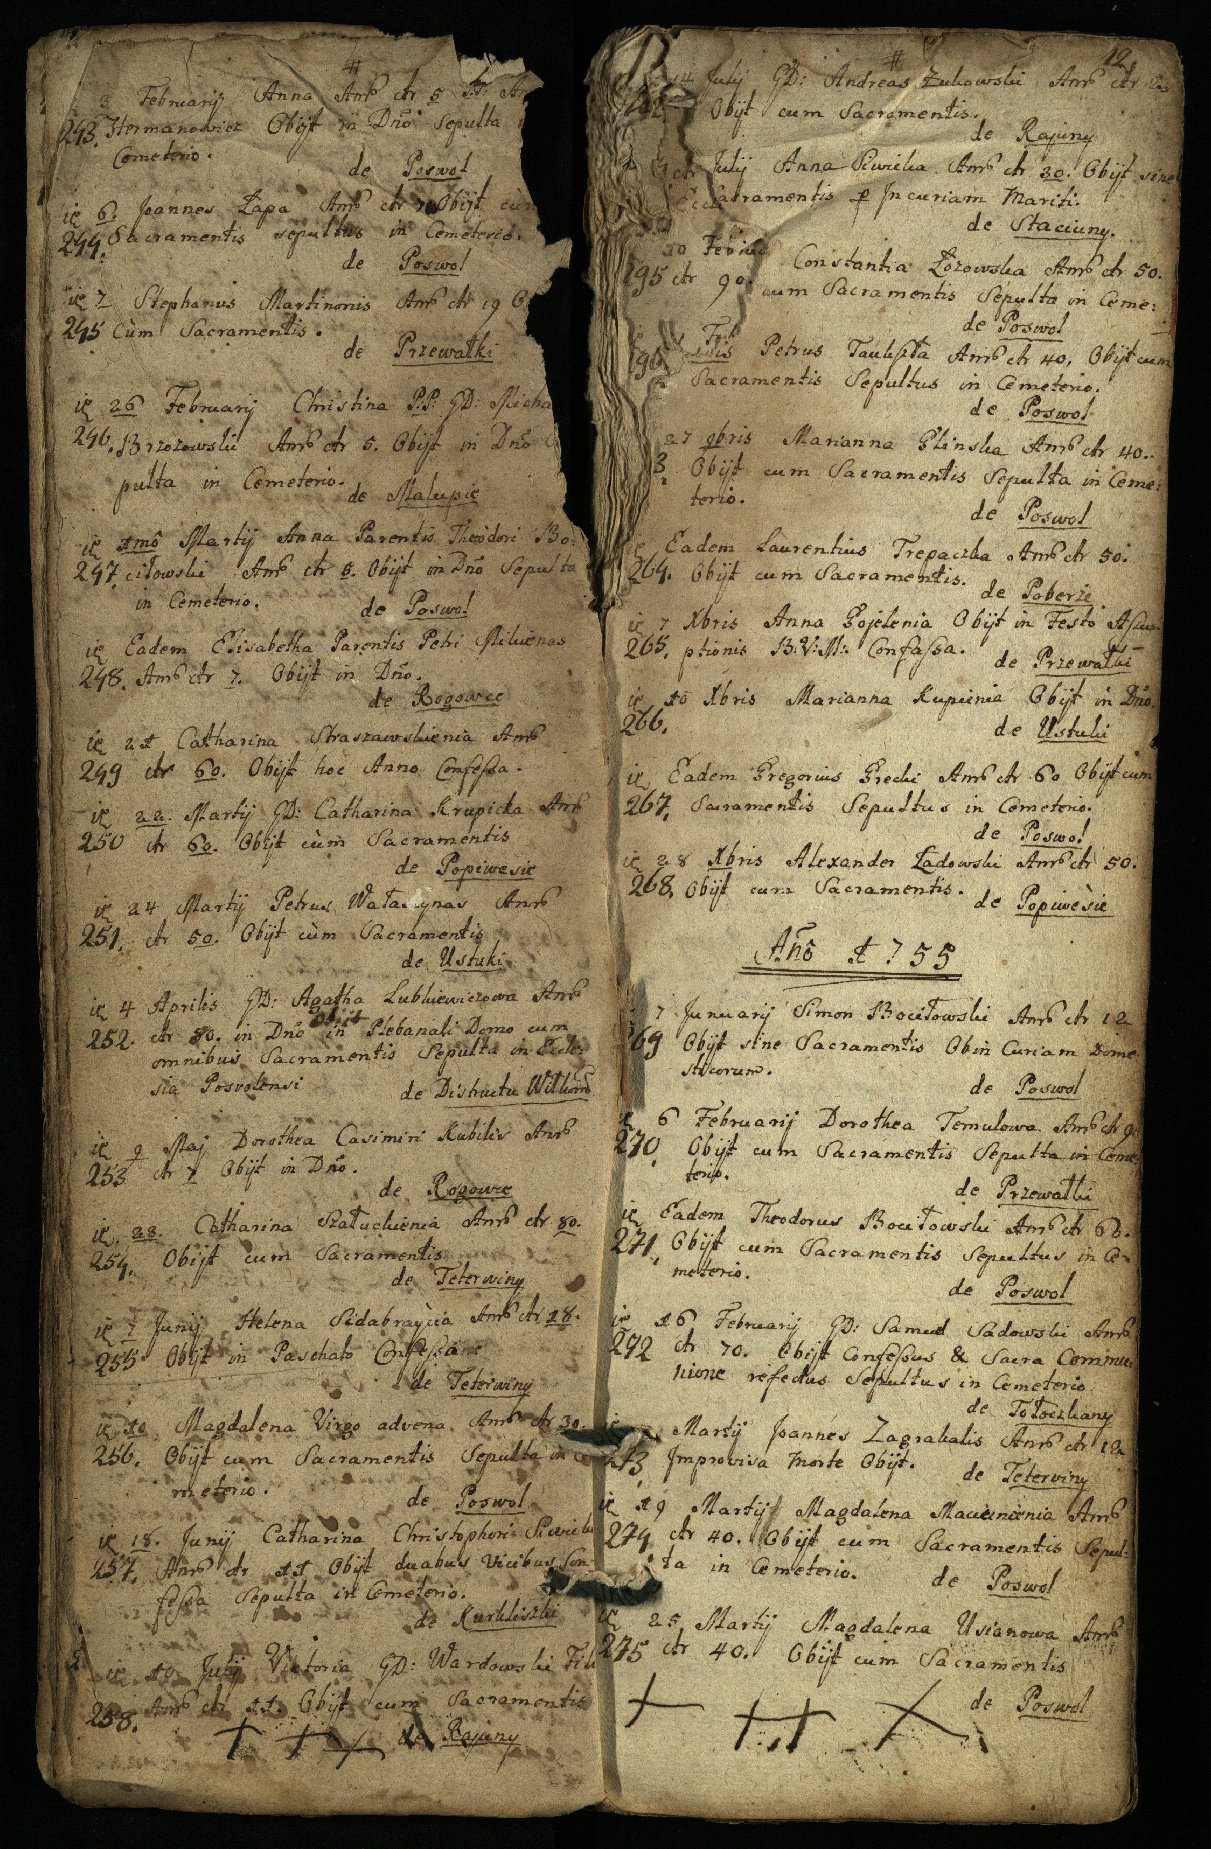 #
3 Februarij Anna Anrō ctr 5
243. Hermanowicz Obijt in Dño Sepulta
Cometerio.
de Poswol
ic 6. Joannes Łapa Anrō ctr Obijt cùm
244. Sacramentis sepultus in Cemeterio.
de Poswol
ic 7 Stephanus Martinonis Anrō ctr 19 O
245 Cùm Sacramentis.
de Przewałki
ic 26 Februarij Christina P.P: GD: Micha
246. Brzozowski Anrō ctr 5. Obijt in Dño
pulta in Cemeterio.
de Malupie
ic 1mô Martij Anna Parentis Theodori Bo:
247 ciłowski Anrō ctr 5. Obijt in Dño Sepulta
in Cemeterio.
de Poswol
ic Eadem Elisabetha Parentis Petri Milwenas
248. Anrō ctr 7. Obijt in Dño.
de Rogowce
ic 21 Catharina Straszewskienia Anrō
249 ctr 60. Obijt hoc Anno Confessa.
ic 22. Martij GD: Catharina Krupicka Anrō
250 ctr 60. Obijt cùm Sacramentis
de Popiwesie
ic 24 Martij Petrus Anrō
251. ctr 50. Obijt cùm Sacramentis
de Ustuki
ic 4 Aprilis GD: Agatha Lubkiewiczowa Anrō
252. ctr 80. in Dño Obijt in Plebanali Domo cum
omnibus Sacramentis Sepulta in Eccle:
sia Posvolensi
de Districtu Wilkom
ic 9 Maj Dorothea Casimiri Kubilis Anrō
253 ctr 7 Obijt in Dño.
de Rogowce
ic. 28. Catharina Szałuckienia Anrō ctr 80.
254. Obijt cum Sacramentis
de Teterwiny
ic 7 Junij Helena Sidabraycia Anrō ctr 18.
255 Obijt in Paschato Confessa.
de Teterwiny
ic 10 Magdalena Virgo advena Anrō ctr 30.
256. Obijt cum Sacramentis Sepulta in Ce
meterio.
de Poswol
ic 18. Junij Catharina Christophori
257. Anrō ctr 11 Obijt duabus Vicibus Con
fessa Sepulta in Cemeterio.
de Kurkliszki
ic 10 Julij Victoria GD: Wardowski Fili
258. Anrō ctr 11. Obijt cum Sacramentis
de Rajuny
#
12
14 Julij GD: Andreas Żukowski Anrō ctr
Obijt cum Sacramentis.
de Rajuny
Julij Anna Anrō ctr 30. Obijt sine
Sacramentis p Incuriam Mariti.
de Staciuny.
20 Constantia Łozowska Anrō ctr 50.
ctr 90. cum Sacramentis Sepulta in Ceme:
de Poswol
Petrus Anrō ctr 40, Obijt cum
Sacramentis Sepultus in Cemeterio.
de Poswol
27 9bris Marianna Glinska Anrō ctr 40.
3 Obijt cum Sacramentis Sepulta in Ceme:
terio.
de Poswol
ic Eadem Laurentius Trepaczka Anrō ctr 50.
264. Obijt cum Sacramentis.
de Poberże
ic 7 Xbris Anna Gojelenia Obijt in Festo Assum
265. ptionis B:V:M: Confassa.
de Przewałki
ic 10 Xbris Marianna Kupienia Obijt in Dño
266.
de Ustuki
ic Eadem Gregorius Grecki Anrō ctr 60 Obijt cum
267. Sacramentis Sepultus in Cemeterio.
de Poswol
ic 28 Xbris Alexander Ładowski Anrō ctr 50.
268. Obijt cum Sacramentis.
de Popiwèsie
Año 1755
7 Junuarij Simon Bociłowski Anrō ctr 12
269 Obijt sine Sacramentis Ob in Curiam Dome
sticorum.
de Poswol
ic 6 Februarij Dorothea Temulowa Anrō ctr 9
270. Obijt cum Sacramentis Sepulta in Ceme
terio.
de Przewałki
ic Eadem Theodorus Bociłowski Anrō ctr 60.
271. Obijt cum Sacramentis Sepultus in Ce-
meterio.
de Poswol
ic 16 Februarij GD: Samuel Sadowski Anrō
272 ctr 70. Obijt Confessus & Sacra Commu
nione refectus Sepultus in Cemeterio.
de Tołoczkany
ic Martij Joannes Zagrakalis Anrō ctr 12
273, Improvisa Morte Obijt.
de Teterwiny
ic 19 Martij Magdalena Macieinienia Anrō
274 ctr 40. Obijt cum Sacramentis Sepul:
ta in Cemeterio.
de Poswol
ic 25 Martij Magdalena Usianowa Anrō
275 ctr 40. Obijt cum Sacramentis
de Poswol